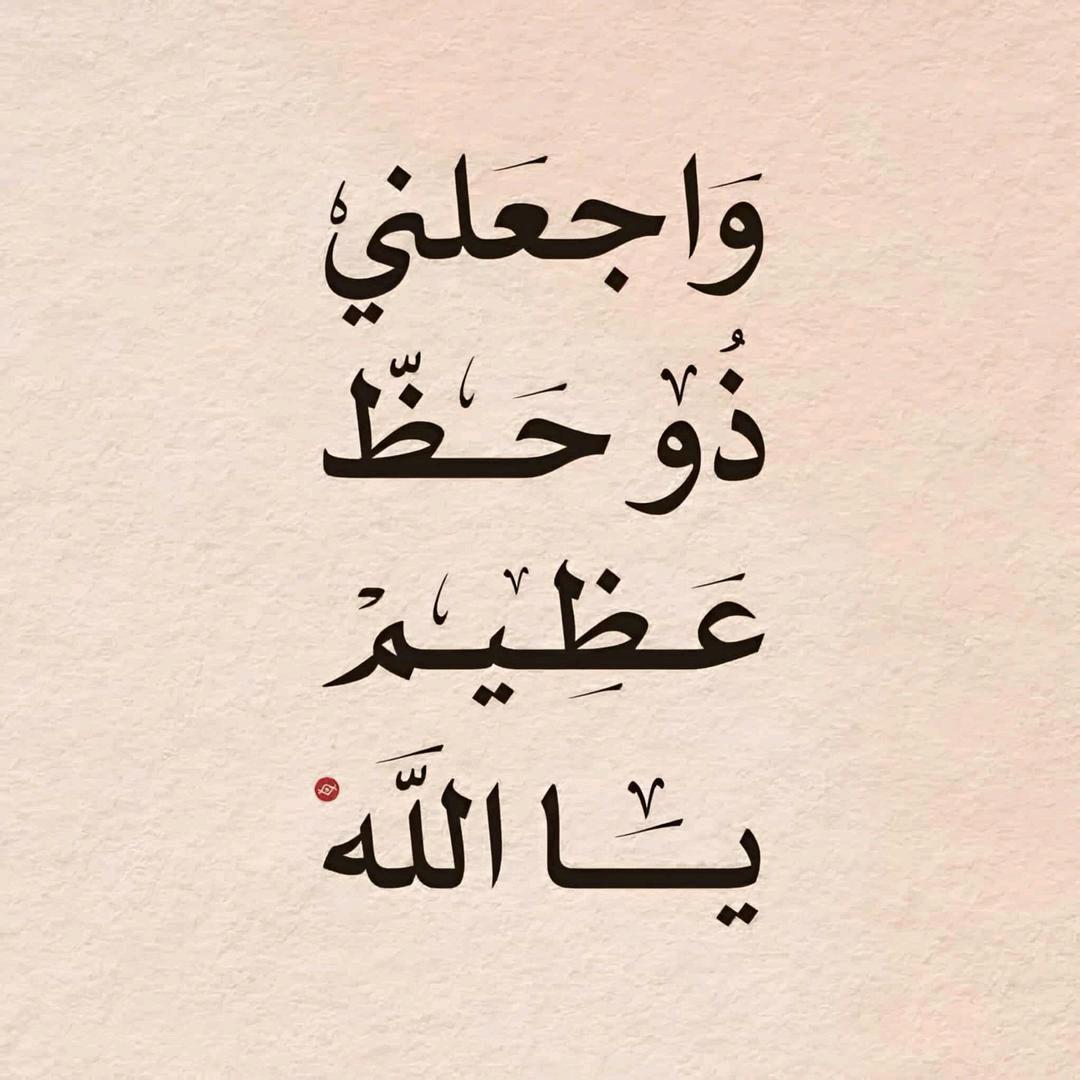 وَاجعَلني
ذُو حَظّ
عَظِيمْ
يَا اللَّه